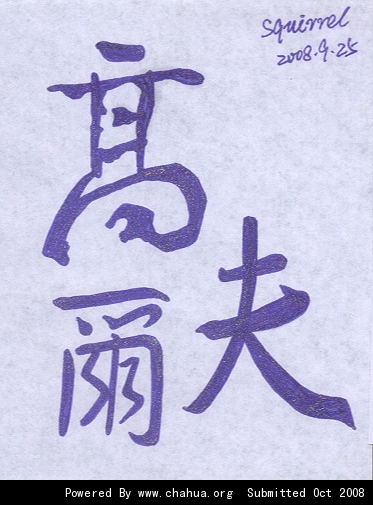 Squirrel
2008.9.25
高
爾夫
Powered By www.chahua.org Submitted Oct 2008